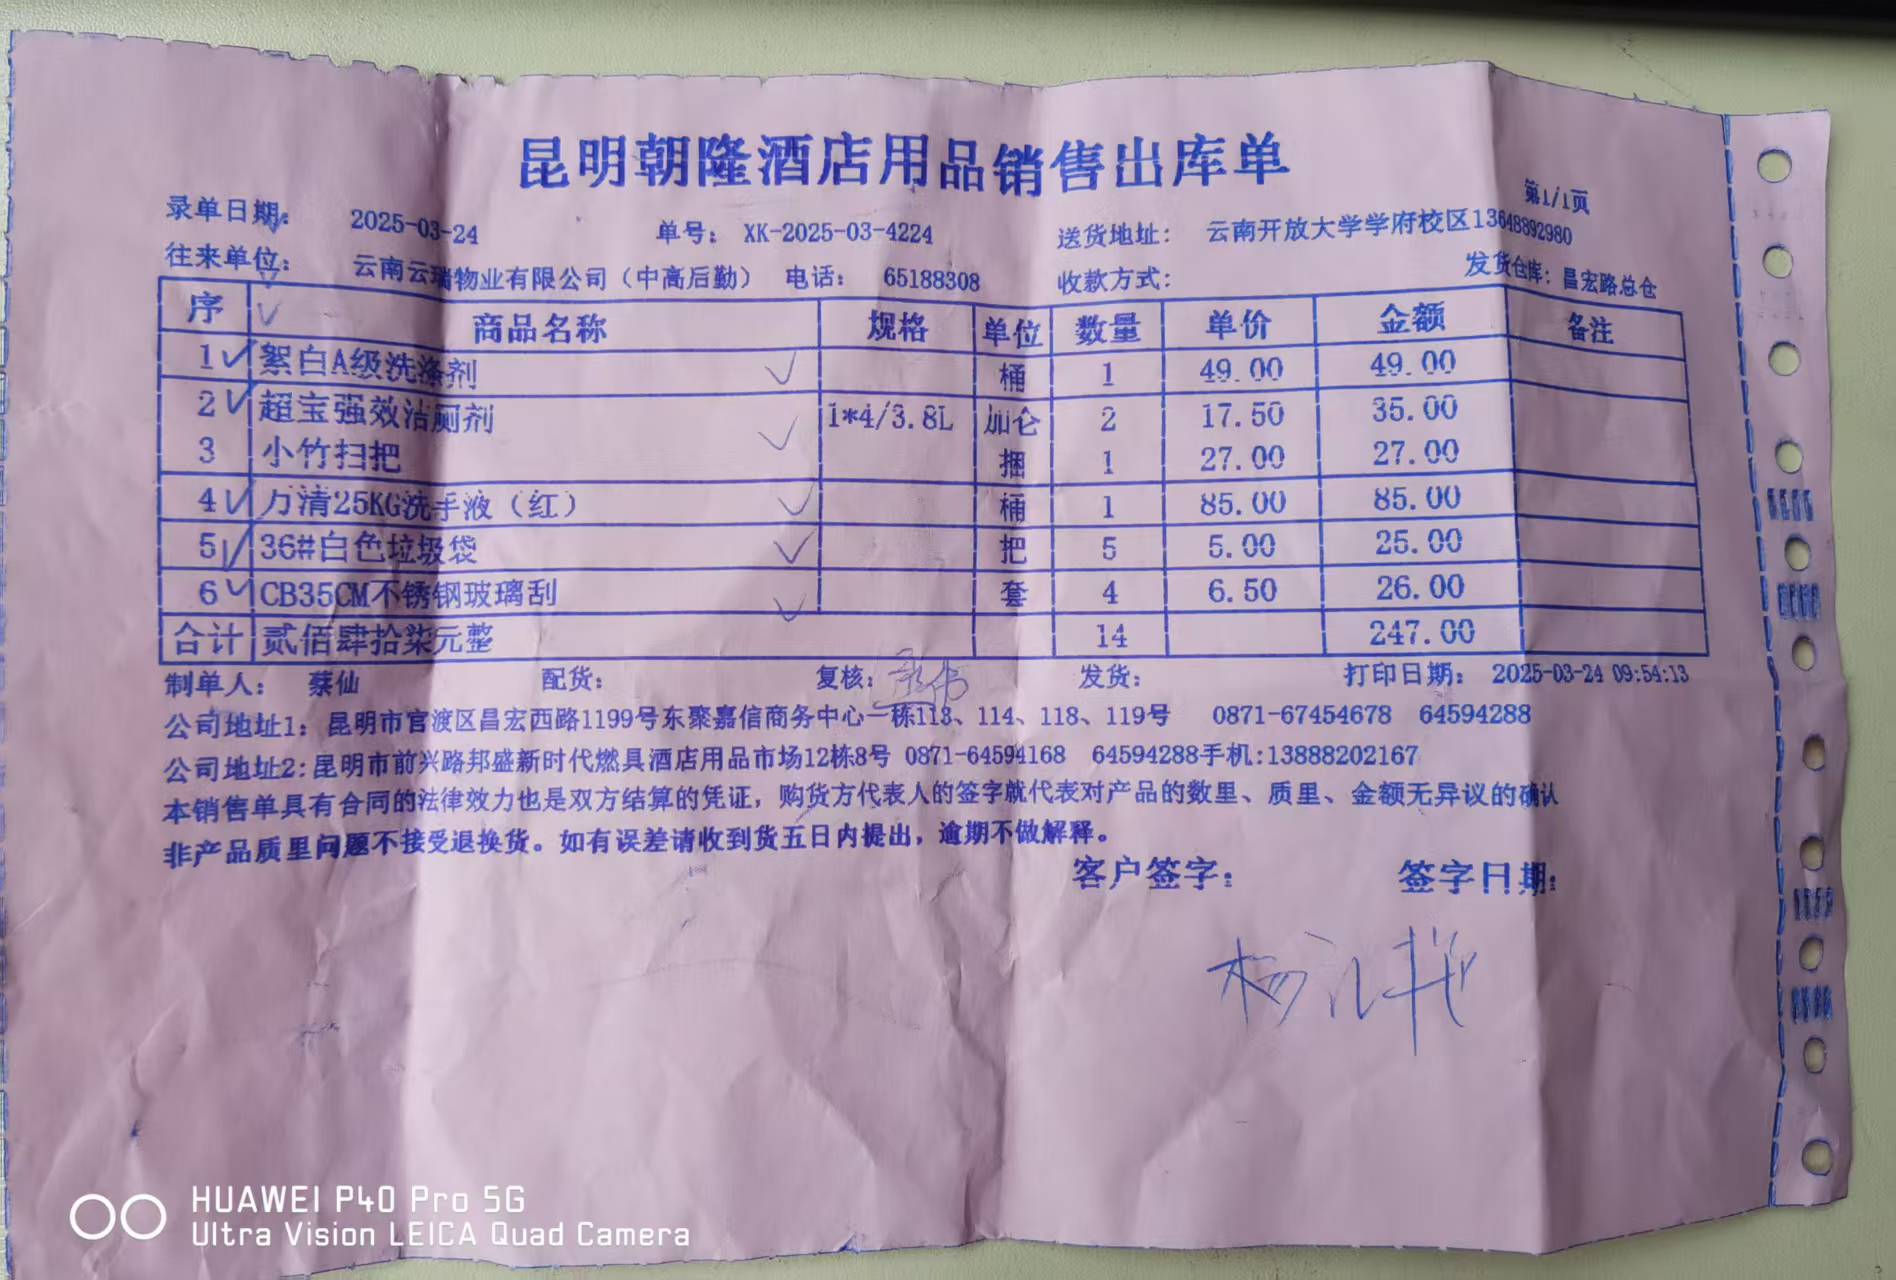 昆明朝隆酒店用品销售出库单
第1/1页
录单日期: 2025-03-24 单号: XK-2025-03-4224 送货地址: 云南开放大学学府校区13648892980
往来单位: 云南云瑞物业有限公司（中高后勤） 电话: 65188308 收款方式: 发货仓库: 昌宏路总仓
序 商品名称 规格 单位 数量 单价 金额 备注
1 絮白A级洗涤剂 桶 1 49.00 49.00
2 超宝强效洁厕剂 1*4/3.8L 加仑 2 17.50 35.00
3 小竹扫把 捆 1 27.00 27.00
4 万清25KG洗手液（红） 桶 1 85.00 85.00
5 36#白色垃圾袋 把 5 5.00 25.00
6 CB35CM不锈钢玻璃刮 套 4 6.50 26.00
合计 贰佰肆拾柒元整 14 247.00
制单人: 蔡仙 配货: 复核: 发货: 打印日期: 2025-03-24 09:54:13
公司地址1: 昆明市官渡区昌宏西路1199号东聚嘉信商务中心一栋113、114、118、119号 0871-67454678 64594288
公司地址2:昆明市前兴路邦盛新时代燃具酒店用品市场12栋8号 0871-64594168 64594288手机:13888202167
本销售单具有合同的法律效力也是双方结算的凭证，购货方代表人的签字就代表对产品的数里、质里、金额无异议的确认
非产品质里问题不接受退换货。如有误差请收到货五日内提出，逾期不做解释。
客户签字: 签字日期:
HUAWEI P40 Pro 5G
Ultra Vision LEICA Quad Camera